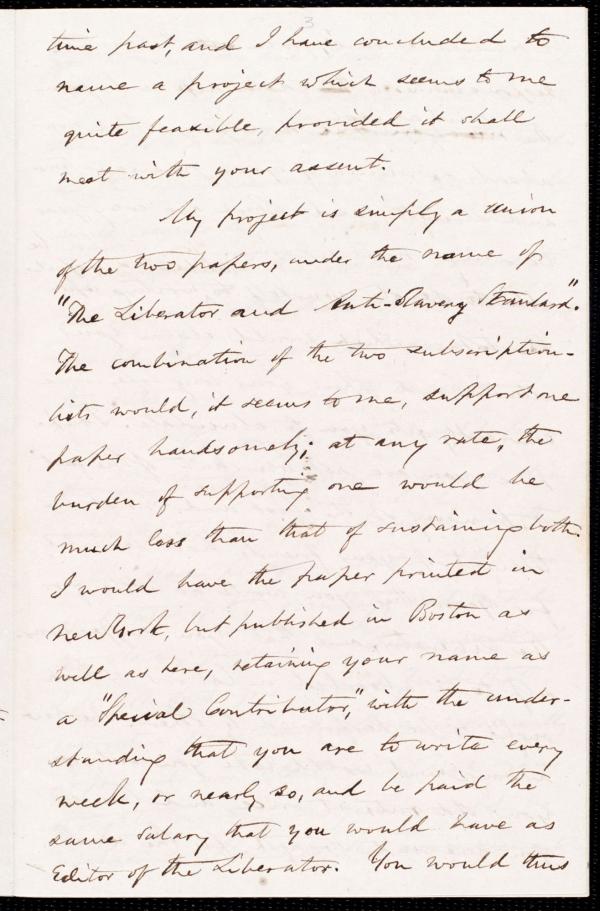 3
time past, and I have concluded to
name a project which seems to me
quite feasible, provided it shall
meet with your assent.
My project is simply a union
of the two papers, under the name of
"The Liberator and Anti-Slavery Standard."
The combination of the two subscription-
lists would, it seems to me, support one
paper handsomely; at any rate, the
burden of supporting one would be
much less than that of sustaining both.
I would have the paper printed in
New York, but published in Boston as
well as here, retaining your name as
a "Special Contributor," with the under-
standing that you are to write every
week, or nearly so, and be paid the
same salary that you would have as
Editor of the Liberator. You would thus